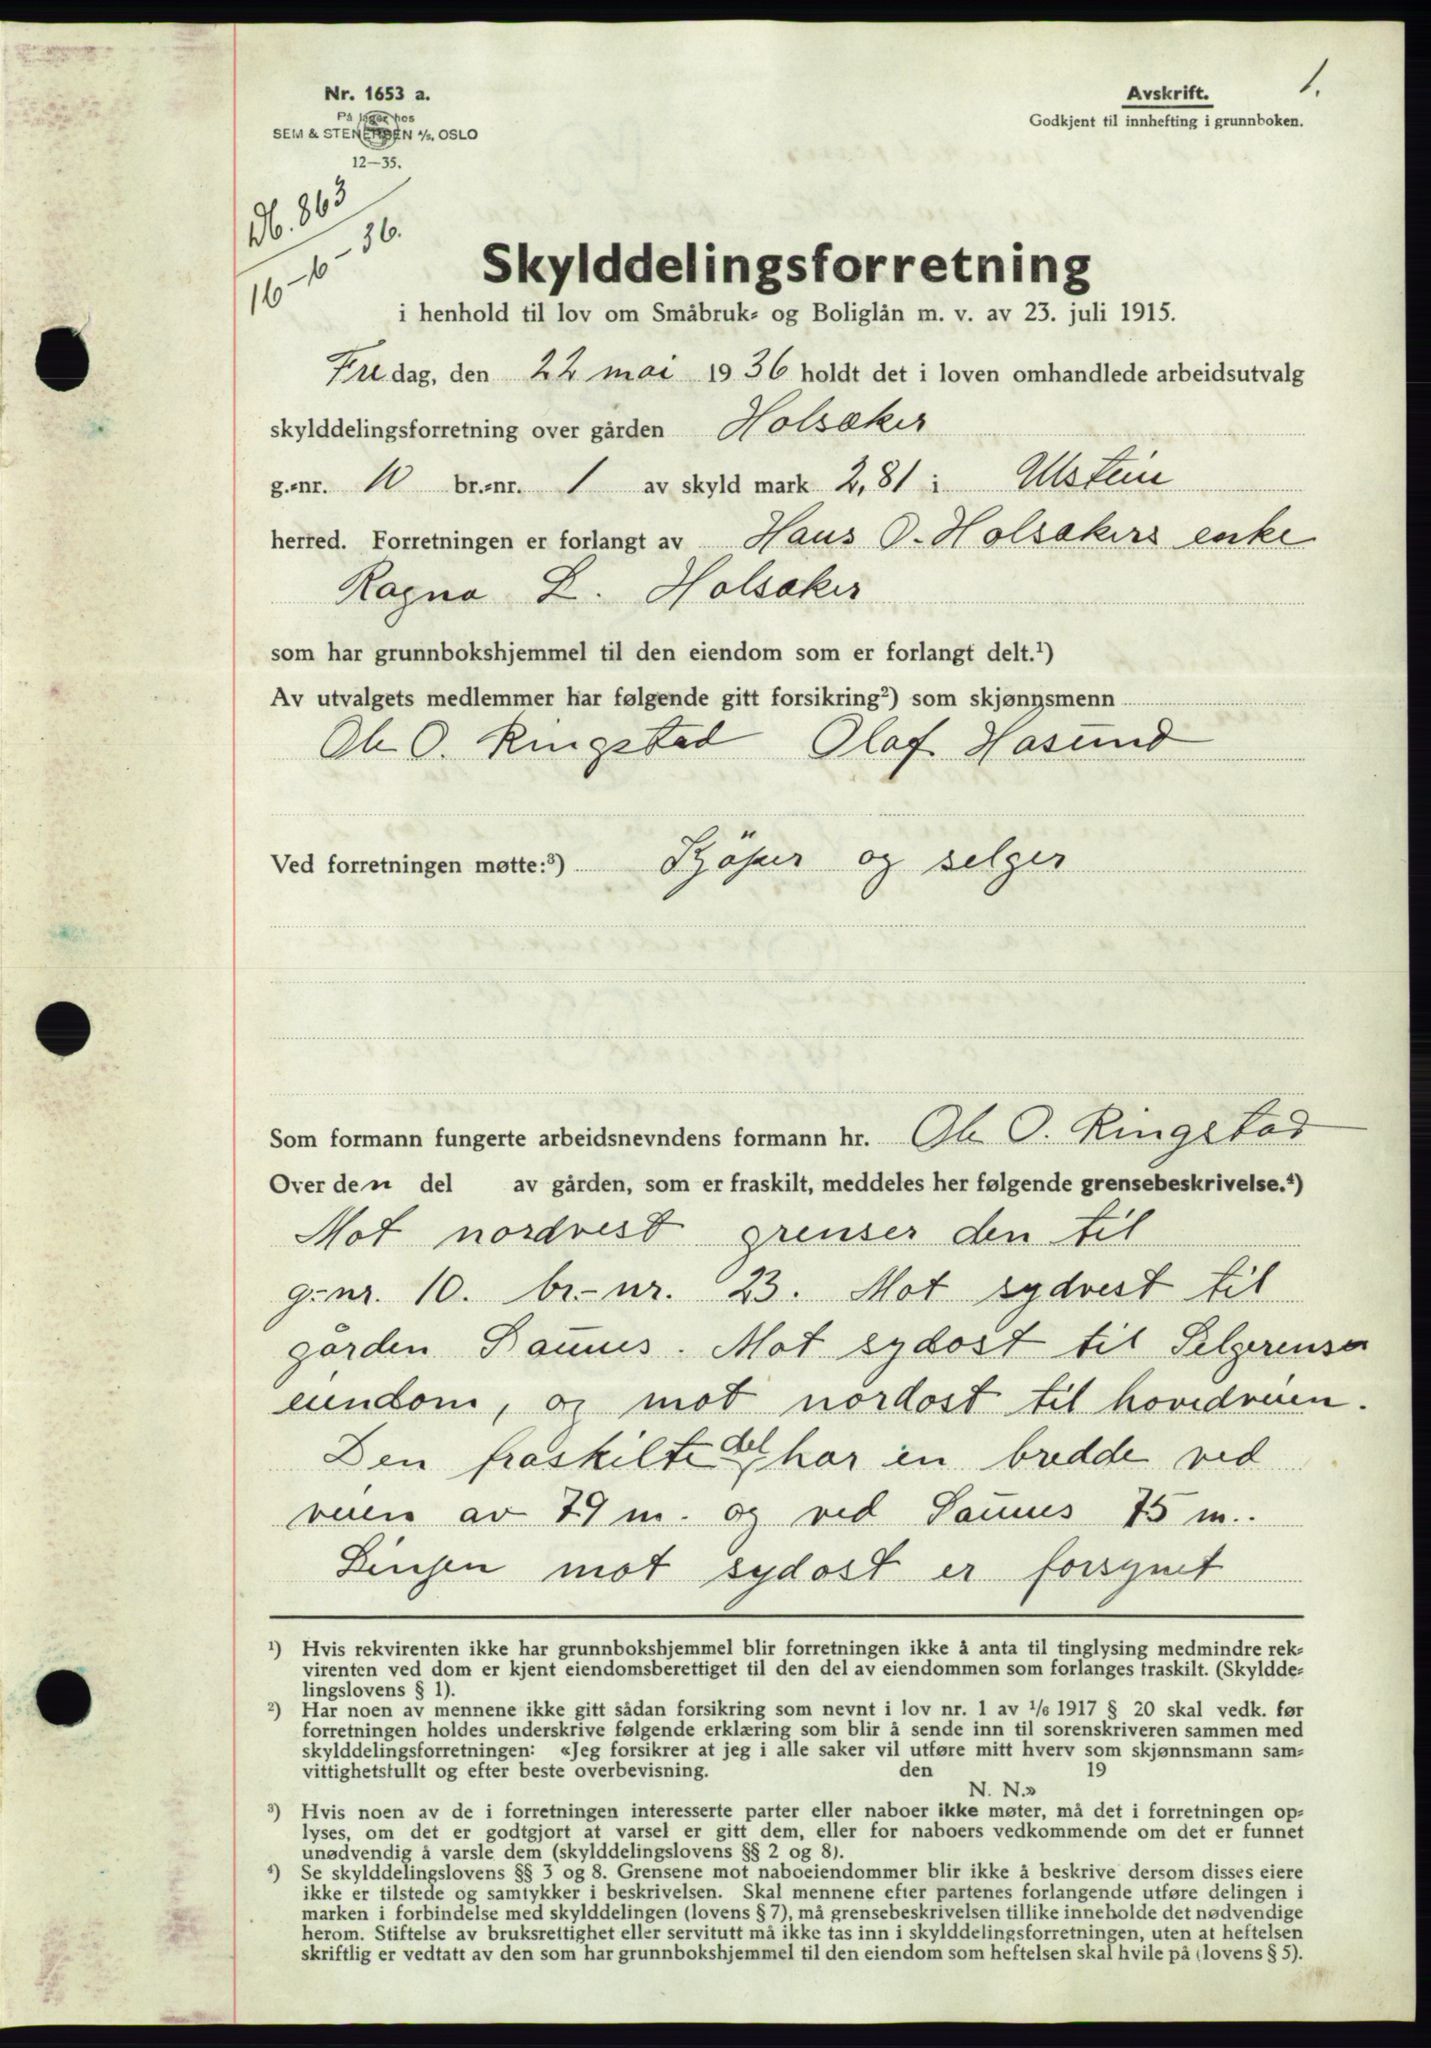 1.
Nr. 1653 a.
På lager hos
SEM & STENERSEN A/S. OSLO
12—35.
Avskrift.
Godkjent til innhefting i grunnboken.
Db. 863
16-6-36.
Skylddelingsforretning
i henhold til lov om Småbruk- og Boliglån m. v. av 23. juli 1915.
Fredag, den 22 mai 1936 holdt det i loven omhandlede arbeidsutvalg
skylddelingsforretning over gården Holsaker
g.-nr. 10 br.-nr. 1 av skyld mark 2,81 i Ulstein
herred. Forretningen er forlangt av Hans O. Holsakers enke
Ragna L. Holsaker
som har grunnbokshjemmel til den eiendom som er forlangt delt.¹)
Av utvalgets medlemmer har følgende gitt forsikring²) som skjønnsmenn
Ole O. Ringstad Olaf Hasund
Ved forretningen møtte:³) Kjöper og selger
Som formann fungerte arbeidsnevndens formann hr. Ole O. Ringstad
Over den del av gården, som er fraskilt, meddeles her følgende grensebeskrivelse.⁴)
Mot nordvest grenser den til
g.-nr. 10. br.-nr. 23. Mot sydvest til
gården Saunes. Mot sydost til Selgerensa
eiendom, og mot nordost til hovedveien.
Den fraskilte del har en bredde ved
veien av 79 m. og ved Saunes 75 m..
Linjen mot sydost er forsynet
¹) Hvis rekvirenten ikke har grunnbokshjemmel blir forretningen ikke å anta til tinglysing medmindre rek-
virenten ved dom er kjent eiendomsberettiget til den del av eiendommen som forlanges fraskilt. (Skyldde-
lingslovens § 1).
²) Har noen av mennene ikke gitt sådan forsikring som nevnt i lov nr. 1 av 1/6 1917 § 20 skal vedk. før
forretningen holdes underskrive følgende erklæring som blir å sende inn til sorenskriveren sammen med
skylddelingsforretningen: «Jeg forsikrer at jeg i alle saker vil utføre mitt hverv som skjønnsmann sam-
vittighetsfullt og efter beste overbevisning. den 19
N. N.»
³) Hvis noen av de i forretningen interesserte parter eller naboer ikke møter, må det i forretningen op-
lyses, om det er godtgjort at varsel er gitt dem, eller for naboers vedkommende om det er funnet
unødvendig å varsle dem (skylddelingslovens §§ 2 og 8).
⁴) Se skylddelingslovens §§ 3 og 8. Grensene mot naboeiendommer blir ikke å beskrive dersom disses eiere
ikke er tilstede og samtykker i beskrivelsen. Skal mennene efter partenes forlangende utføre delingen i
marken i forbindelse med skylddelingen (lovens § 7), må grensebeskrivelsen tillike inneholde det nødvendige
herom. Stiftelse av bruksrettighet eller servitutt må ikke tas inn i skylddelingsforretningen, uten at heftelsen
skriftlig er vedtatt av den som har grunnbokshjemmel til den eiendom som heftelsen skal hvile på (lovens § 5).